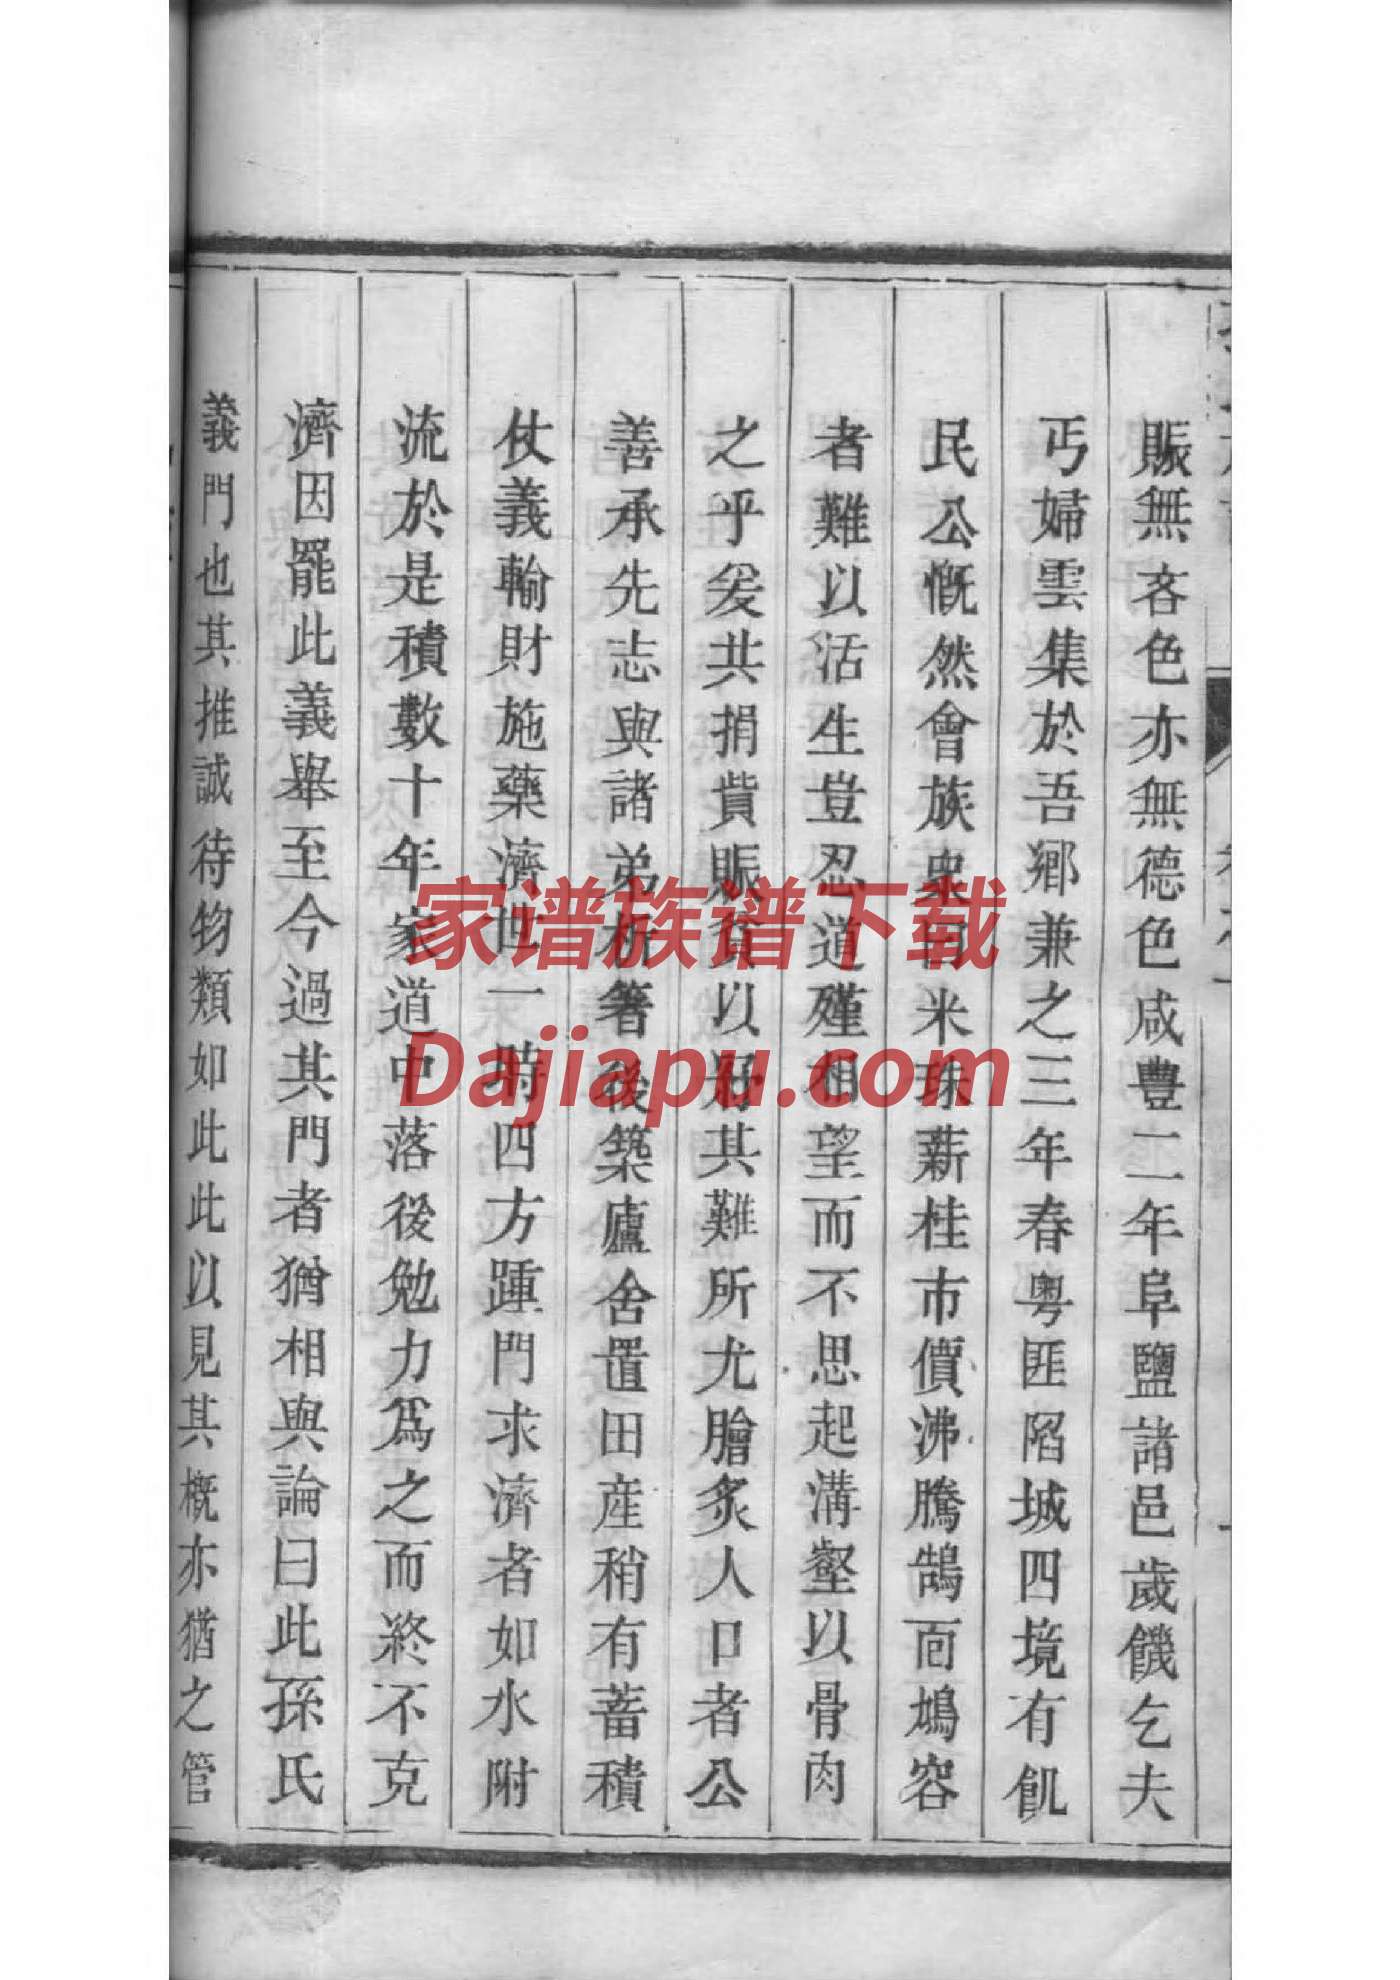 賑無吝色亦無德色咸豐二年阜鹽諸邑歲饑乞夫
丐婦雲集於吾鄉兼之三年春粵匪陷城四境有飢
民公慨然會族衆曰米珠薪桂市價沸騰鵠面鳩容
者難以活生豈忍道殣相望而不思起溝壑以骨肉
之乎爰共捐貲賑貧以紓其難所尤膾炙人口者公
善承先志與諸弟析箸後築廬舍置田產稍有蓄積
仗義輸財施藥濟世一時四方踵門求濟者如水附
流於是積數十年家道中落後勉力爲之而終不克
濟因罷此義舉至今過其門者猶相與論曰此孫氏
義門也其推誠待物類如此此以見其概亦猶之管
家谱族谱下载
Dajiapu.com